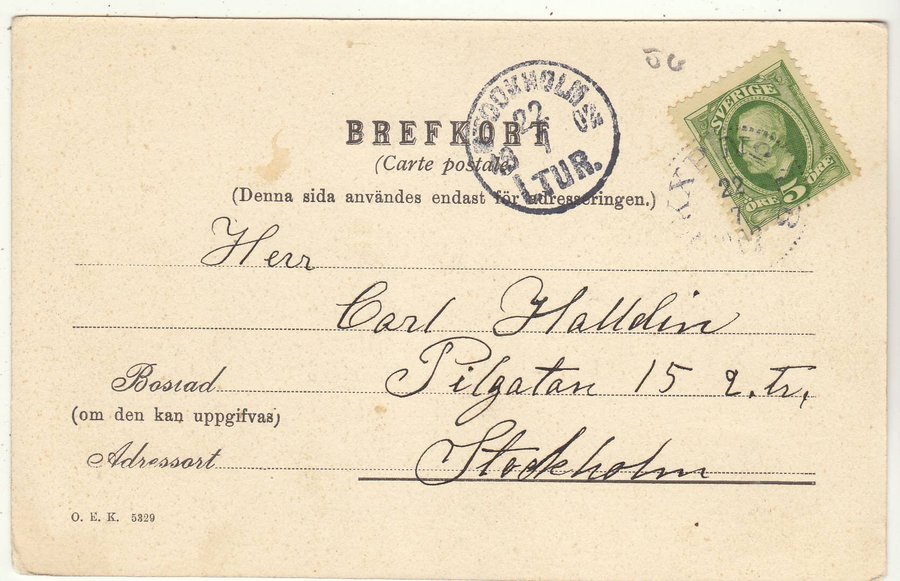 SVERIGE
5
ÖRE ÖRE
22
7
STOCKHOLM
22
7
1 TUR.
BREFKORT
(Carte postale)
(Denna sida användes endast för adresseringen.)
Herr
Carl Halldin
Bostad
Pilgatan 15 2. tr.
(om den kan uppgifvas)
Adressort
Stockholm
O. E. K. 5329